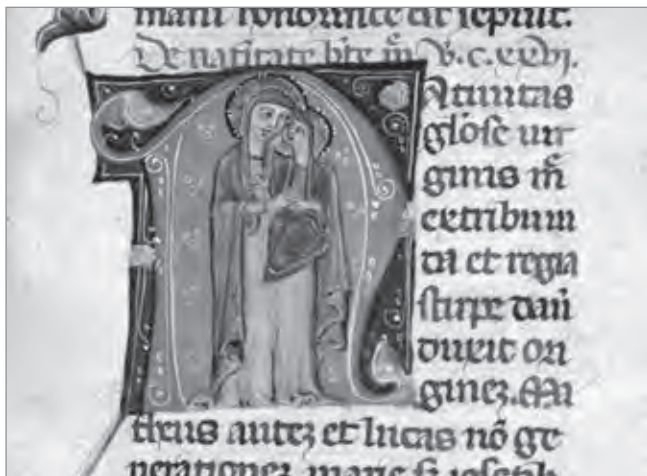 honorifice
De natiuitate bte m̄ v.c.xxvj.
NAtiuitas
gl̄ose uir
ginis m̄
ex tribu iu
da et regia
stirpe daui
duxit ori
ginez. Ma
theus autez et lucas nō ge
nerationez marie s̄ ioseph